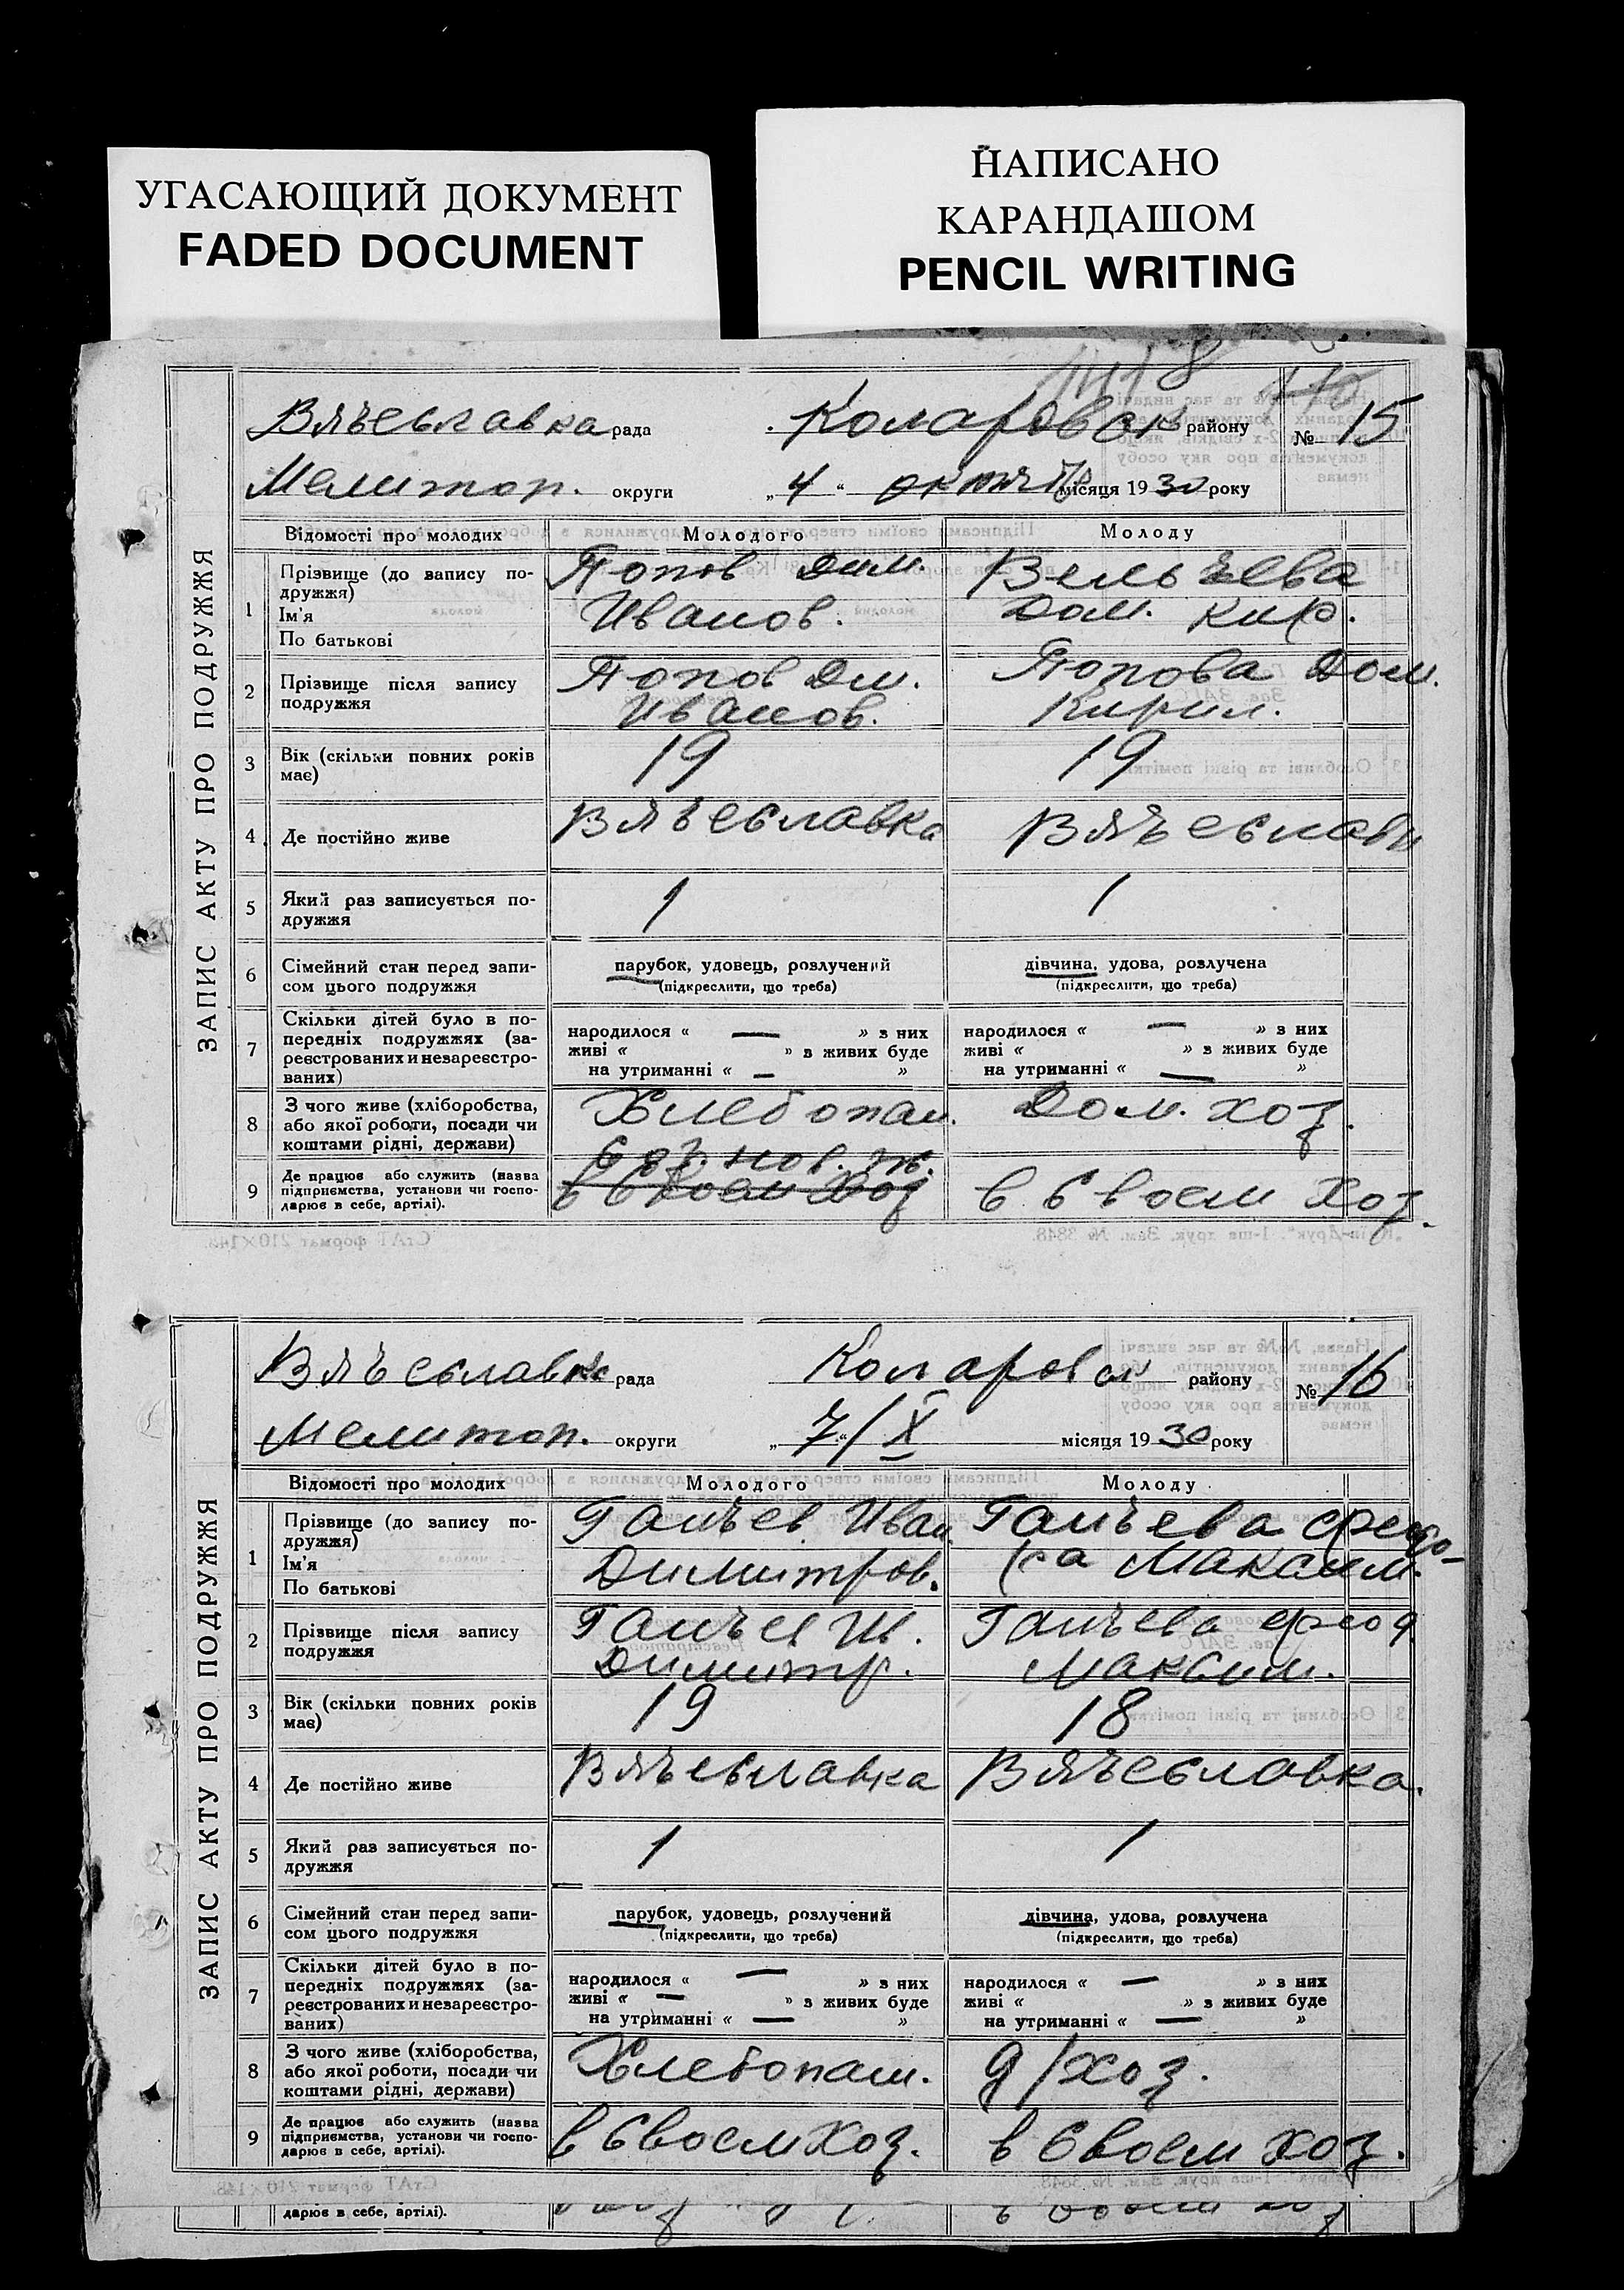 УГАСАЮЩИЙ ДОКУМЕНТ
FADED DOCUMENT
НАПИСАНО
КАРАНДАШОМ
PENCIL WRITING
ЗАПИС АКТУ ПРО ПОДРУЖЖЯ
Вячеславка рада Коларовск району № 15
Мелитоп. округи „ 4 “ октяб місяця 1930 року
Відомості про молодих Молодого Молоду
1 Прізвище (до запису по-
дружжя)
Ім'я
По батькові
Попов Дим.
Иванов.
Вельчева
Дом. Кир.
2 Прізвище після запису
подружжя
Попов Дм.
Иванов.
Попова Дом.
Кирил.
3 Вік (скільки повних років
має)
19 19
4 Де постійно живе Вячеславка Вячеславк
5 Який раз записується по-
дружжя
1 1
6 Сімейний стан перед запи-
сом цього подружжя
парубок, удовець, розлучений
(підкреслити, що треба)
дівчина, удова, розлучена
(підкреслити, що треба)
7 Скільки дітей було в по-
передніх подружжях (за-
реєстрованих и незареєстро-
ваних)
народилося « — » з них
живі « » з живих буде
на утриманні « — »
народилося « — » з них
живі « » з живих буде
на утриманні « — »
8 З чого живе (хліборобства,
або якої роботи, посади чи
коштами рідні, держави)
Хлебопаш. Дом. хоз.
9 Де працює або служить (назва
підприємства, установи чи госпо-
дарює в себе, артілі).
в своем хоз
в своем хоз.
ЗАПИС АКТУ ПРО ПОДРУЖЖЯ
Вячеславка рада Коларовск району № 16
Мелитоп. округи „ 7 “ / X місяця 1930 року
Відомості про молодих Молодого Молоду
1 Прізвище (до запису по-
дружжя)
Ім'я
По батькові
Ганчев Иван
Димитров.
Ганчева Федо-
ра Максим.
2 Прізвище після запису
подружжя
Ганчев Ив.
Димитр.
Ганчева Фед.
Максим.
3 Вік (скільки повних років
має)
19 18
4 Де постійно живе Вячеславка Вячеславка.
5 Який раз записується по-
дружжя
1 1
6 Сімейний стан перед запи-
сом цього подружжя
парубок, удовець, розлучений
(підкреслити, що треба)
дівчина, удова, розлучена
(підкреслити, що треба)
7 Скільки дітей було в по-
передніх подружжях (за-
реєстрованих и незареєстро-
ваних)
народилося « — » з них
живі « — » з живих буде
на утриманні « — »
народилося « — » з них
живі « » з живих буде
на утриманні « — »
8 З чого живе (хліборобства,
або якої роботи, посади чи
коштами рідні, держави)
Хлебопаш. д/хоз.
9 Де працює або служить (назва
підприємства, установи чи госпо-
дарює в себе, артілі).
в своем хоз. в своем хоз.
дарює в себе, артілі).